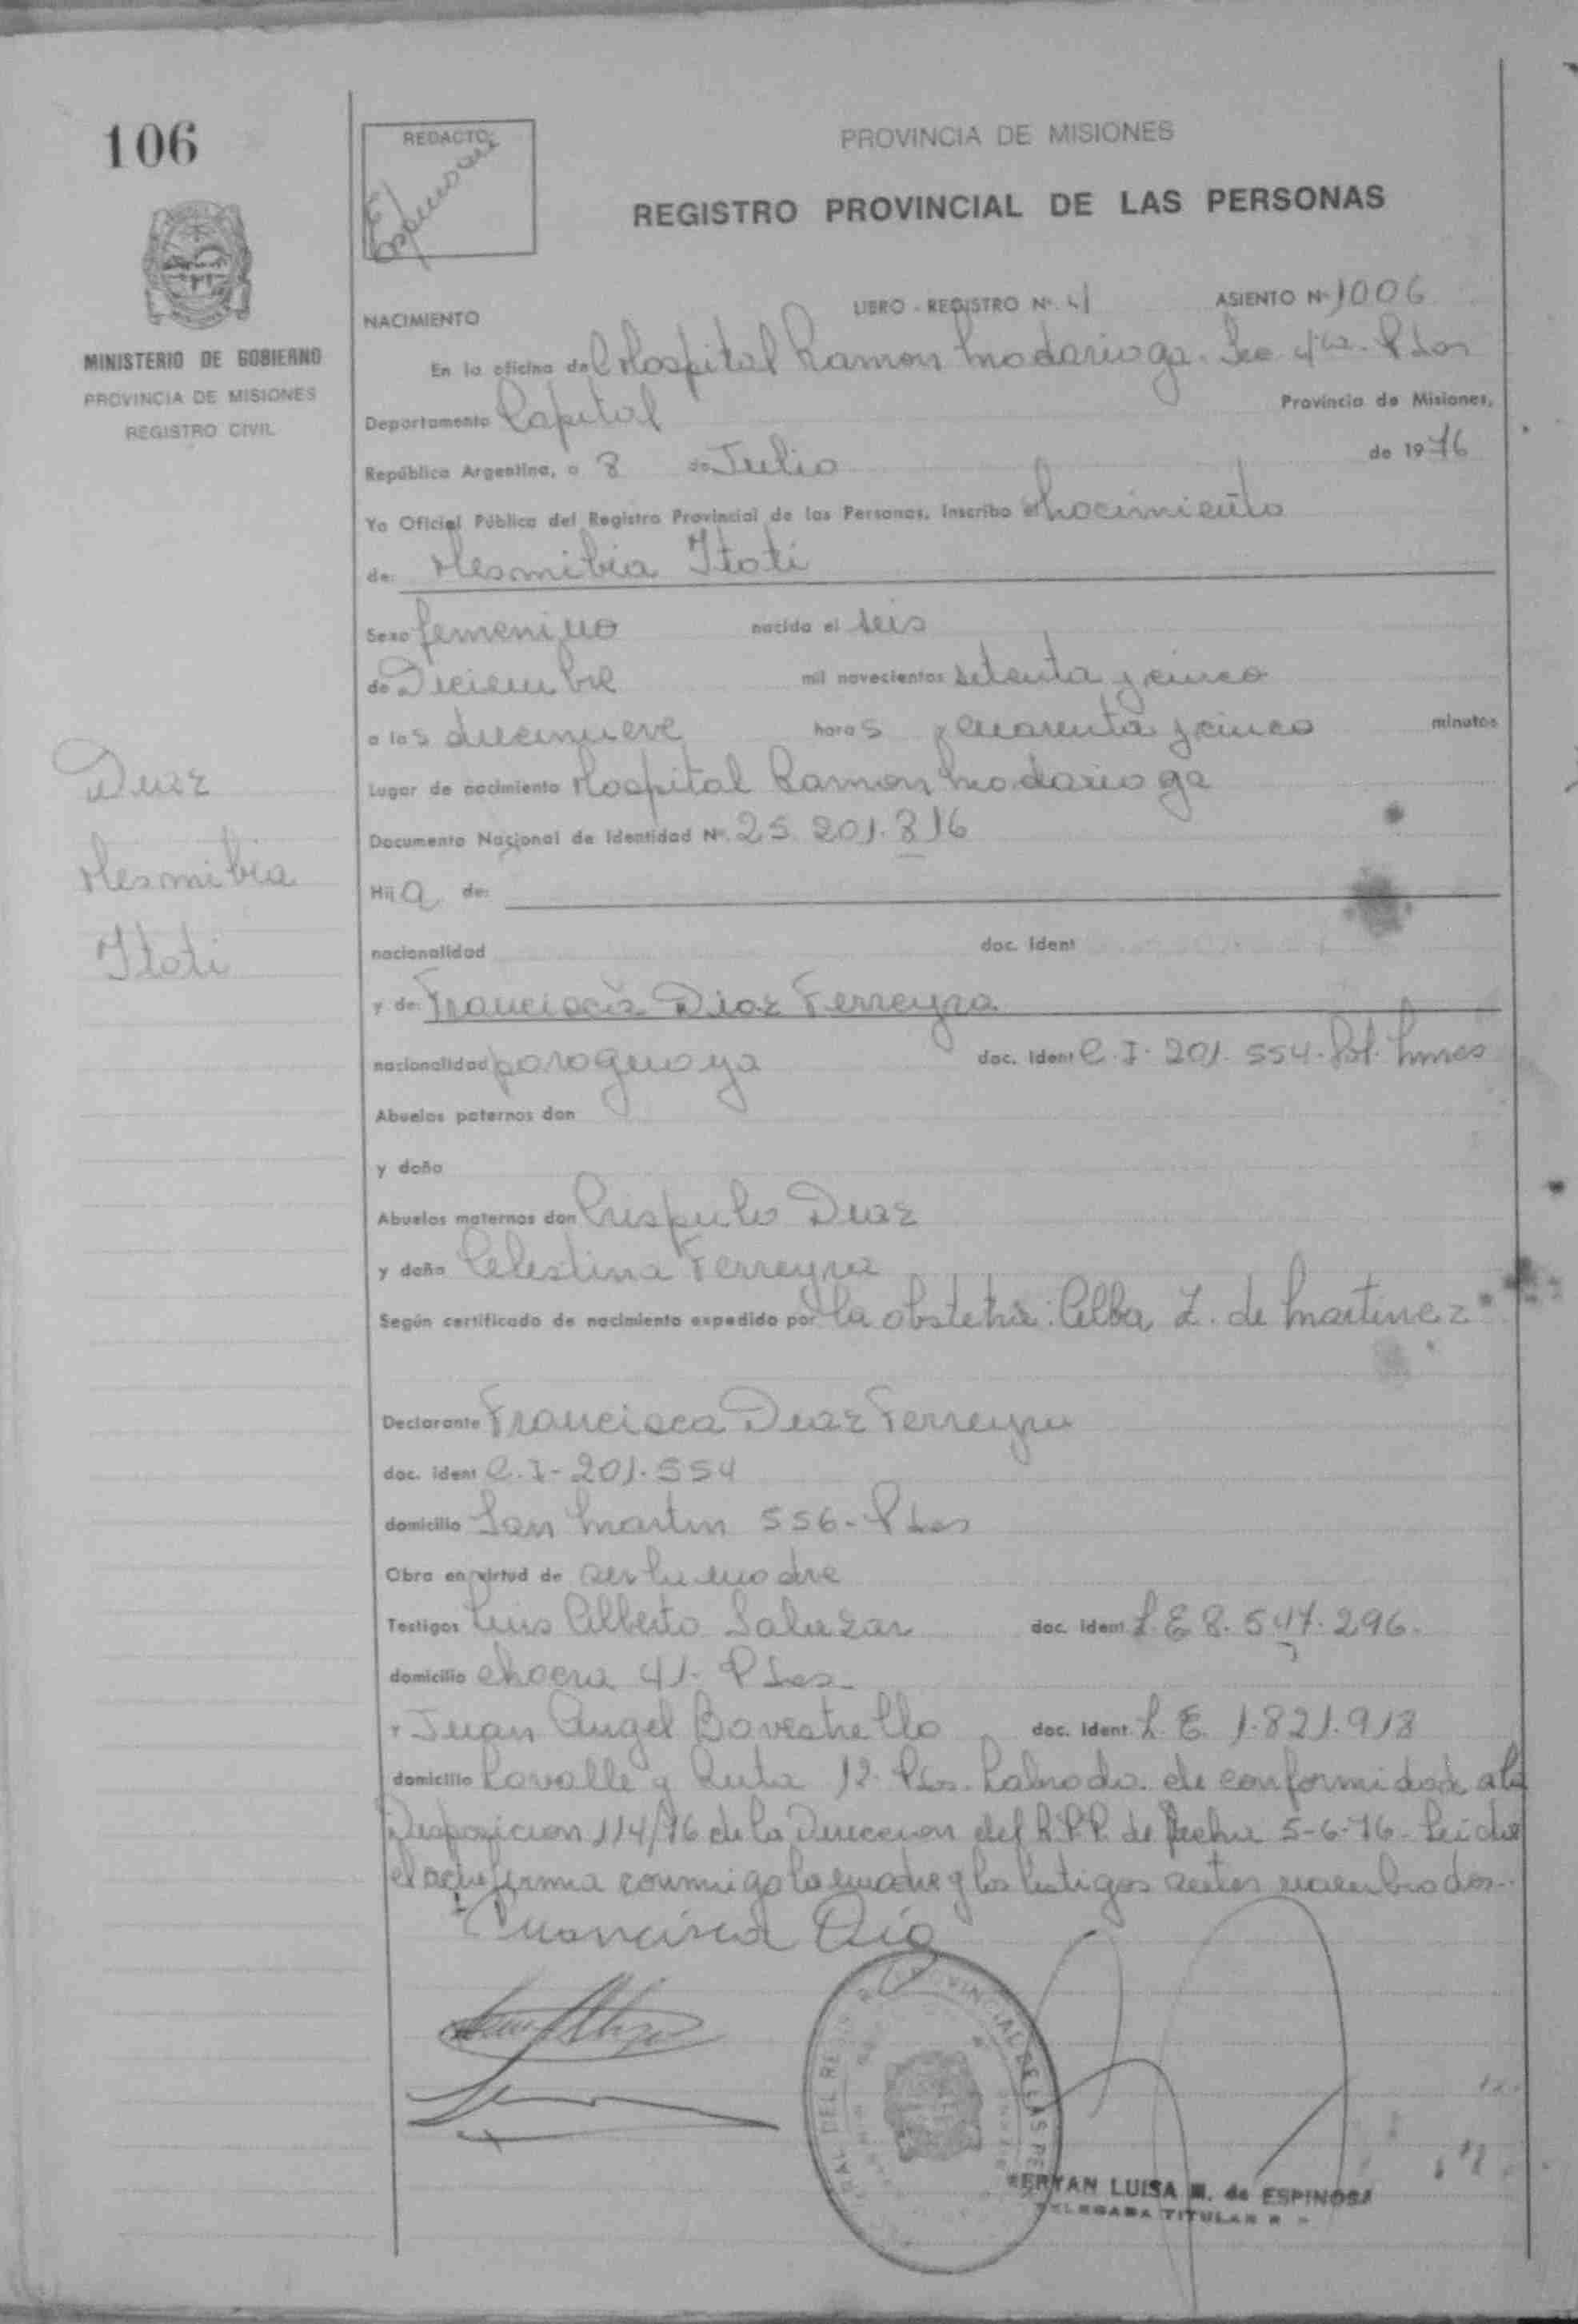 106
REDACTO:
PROVINCIA DE MISIONES
REGISTRO PROVINCIAL DE LAS PERSONAS
MINISTERIO DE GOBIERNO
PROVINCIA DE MISIONES
REGISTRO CIVIL
NACIMIENTO
LIBRO - REGISTRO Nº. 41 ASIENTO Nº 1006
En la oficina del Hospital Ramon Madariaga. Sec 4ta. Pdas
Departamento Capital Provincia de Misiones,
República Argentina, a 8 de Julio de 1976
Yo Oficial Público del Registro Provincial de las Personas, Inscribo el nacimiento
de: Hesmibia Itati
Sexo femenino nacida el seis
de Diciembre mil novecientos setenta y cinco
a las diecinueve horas y cuarenta y cinco minutos
Lugar de nacimiento Hospital Ramon Madariaga
Documento Nacional de Identidad Nº. 25.201.816
Hija de:
nacionalidad doc. ident
y de: Francisca Diaz Ferreyra
nacionalidad paraguaya doc. ident C.I. 201.554. Pol. Mnes
Abuelos paternos don
y doña
Abuelos maternos don Crispulo Diaz
y doña Celestina Ferreyra
Según certificado de nacimiento expedido por la obstetra: Alba Z. de Martinez
Declarante Francisca Diaz Ferreyra
doc. ident C.I- 201.554
domicilio San Martin 556- Pdas
Obra en virtud de ser la madre
Testigos Luis Alberto Salazar doc. ident L.E 8.547.296.
domicilio chacra 41- Pdas
y Juan Angel Bovestrello doc. ident. L.E. 1.821.918
domicilio Lavalle y Ruta 12. Pdas. Labrada de conformidad a la
Disposicion 114/76 de la Direccion del R.P.P. de fecha 5-6-76- Leida
el acta firma conmigo la madre y los testigos antes nombrados-.
Francisca Dia
Diaz
Hesmibia
Itati
PROVINCIAL DE LAS PE
LUISA M. de ESPINOSA
DELEGADA TITULAR